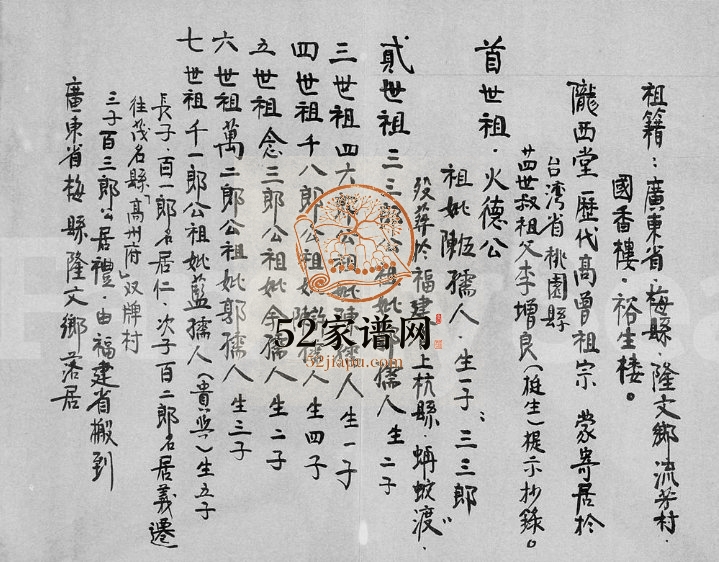 祖籍：廣東省·梅縣·隆文鄉流芳村·
國香樓·裕生樓。
隴西堂歷代高曾祖宗 蒙寄居於
台湾省桃園縣
廿四世叔祖父李增良（挺生）提示抄錄。
首世祖·火德公
祖妣 孺人·生一子：三三郎
貳世祖 三三郎公祖妣 孺人生二子
發葬於福建 上杭縣·蛃蚊渡·
三世祖四六郎公祖妣陳孺人生一子
四世祖千八郎公祖妣 孺人生四子
五世祖念三郎公祖妣余孺人生二子
六世祖萬二郎公祖妣郭孺人生三子
七世祖千一郎公祖妣藍孺人（ ）生五子
長子·百一郎名居仁·次子百二郎名居義遷
往茂名縣「高州府」双牌村
三子百三郎公居禮·由福建省搬到
廣東省梅縣隆文鄉落居
52家谱网
52jiapu.com